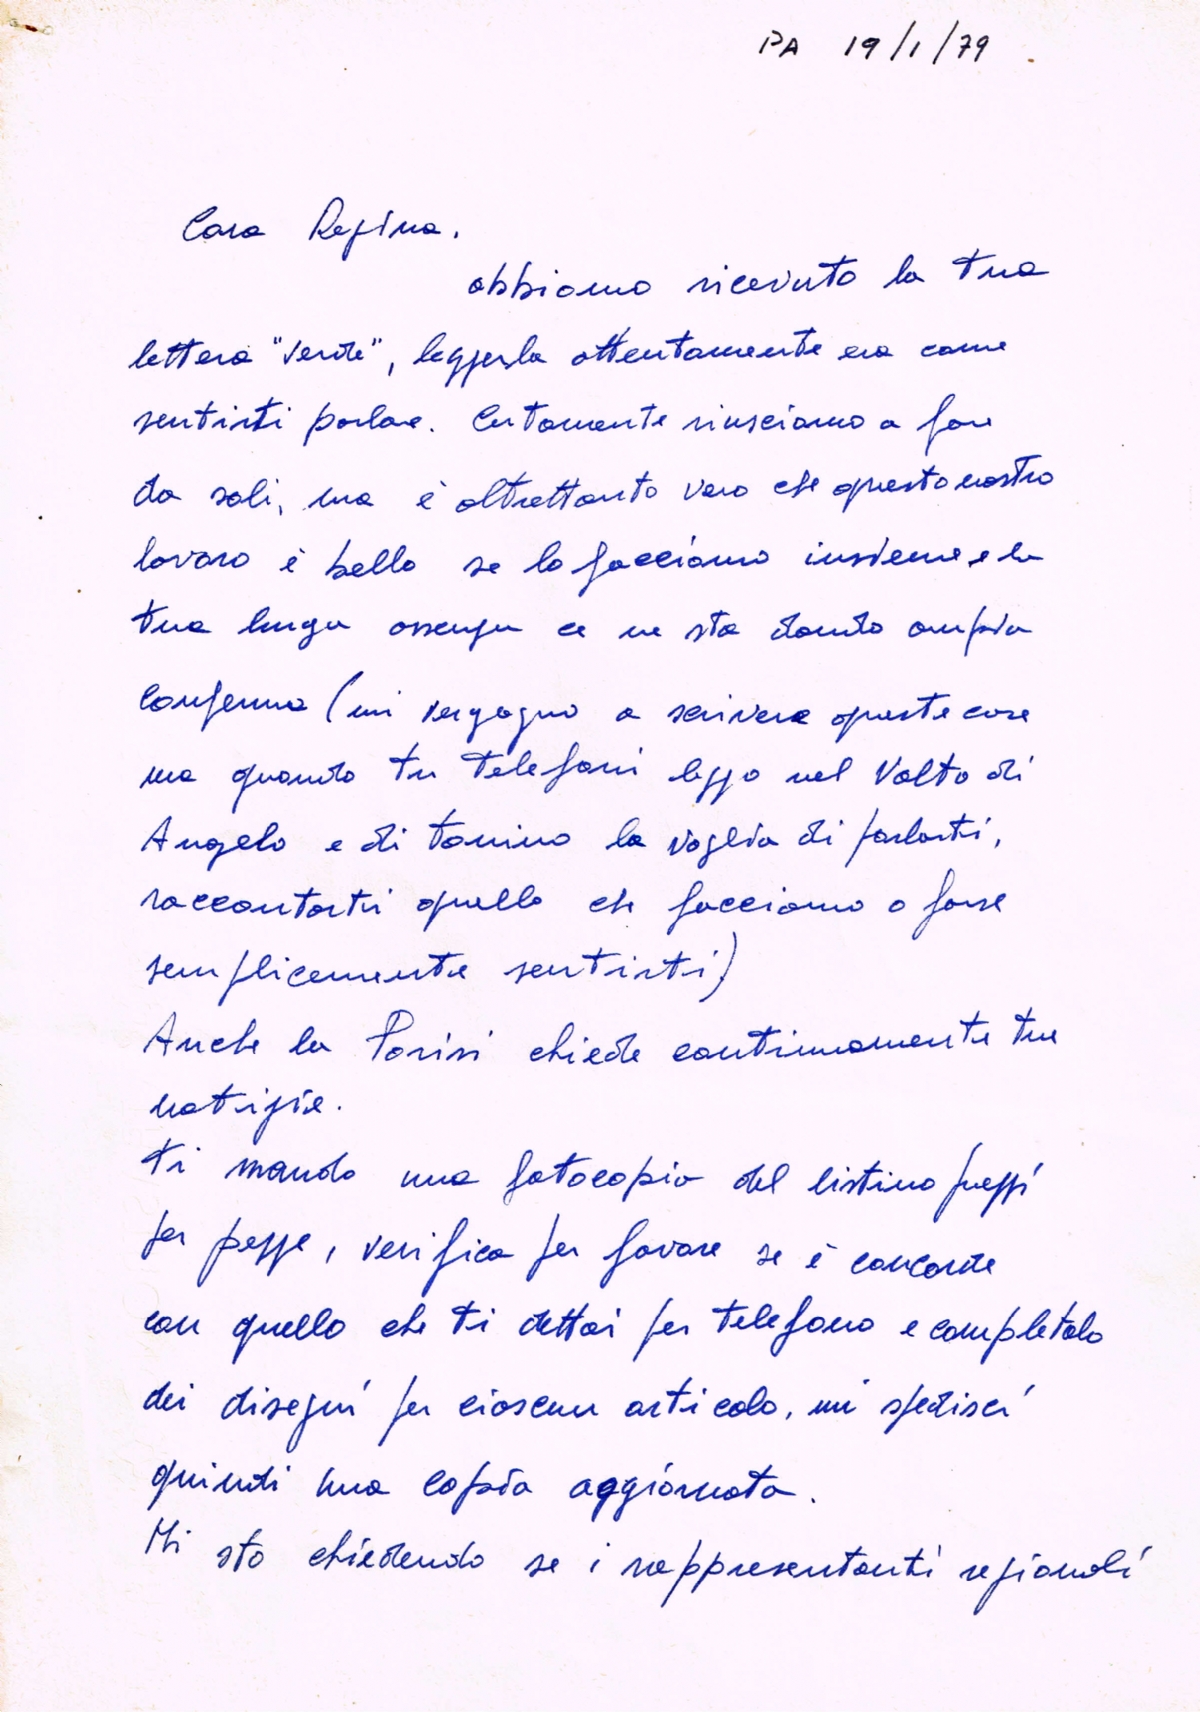 PA 19/1/79
Cara Regina.
abbiamo ricevuto la tua
lettera "verde", leggerla attentamente era come
sentirti parlare. Certamente riusciamo a fare
da soli, ma è altrettanto vero che questo nostro
lavoro è bello se lo facciamo insieme e la
tua lunga assenza ce ne sta dando ampia
conferma (mi vergogno a scrivere queste cose
ma quando tu telefoni leggo nel volto di
Angelo e di Tonino la voglia di parlarti,
raccontarti quello che facciamo o forse
semplicemente sentirti)
Anche la Parisi chiede continuamente tue
notizie.
Ti mando una fotocopia del listino prezzi
per pezze, verifica per favore se è concorde
con quello che ti dettai per telefono e completalo
dei disegni per ciascun articolo, mi spedisci
quindi una copia aggiornata.
Mi sto chiedendo se i rappresentanti regionali